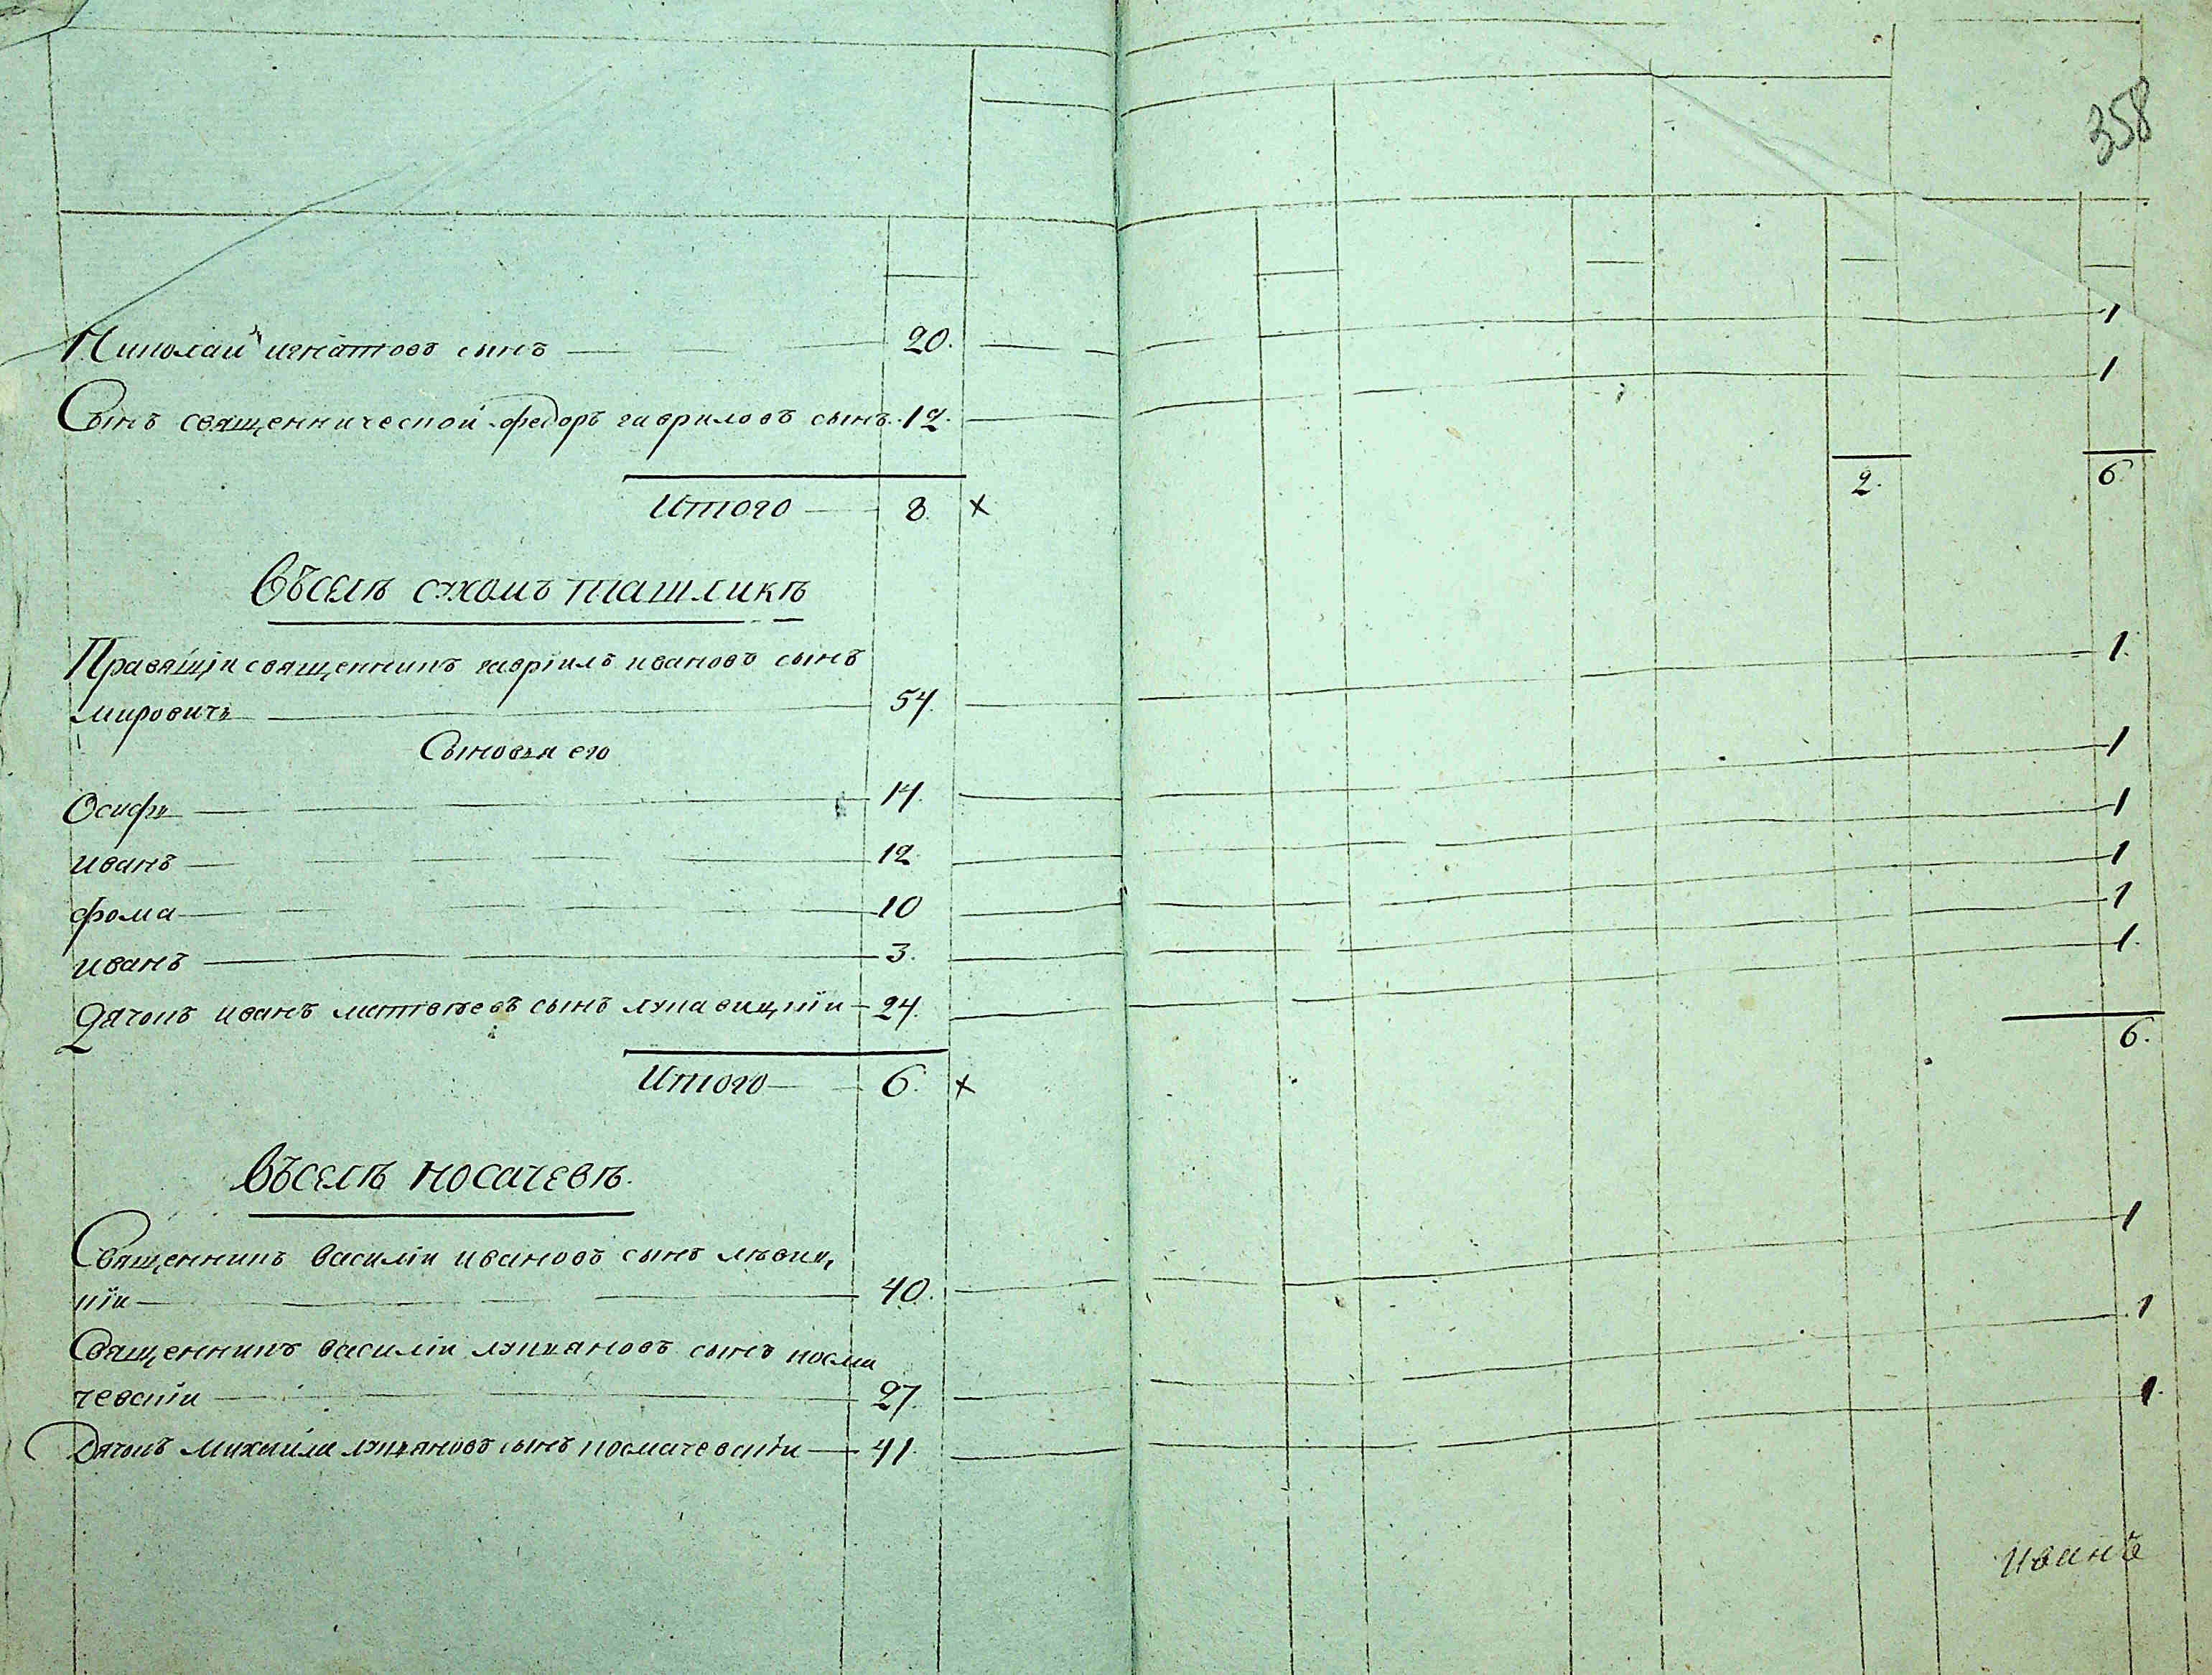 358
Николай игнатовъ сынъ 20. 1
Сынъ священнической федоръ гавриловъ сынъ 12. 1
Итого 8. × 2. 6
Въселѣ сухомъ ташликѣ
Правящїи священникъ гаврїилъ ивановъ сынъ
мировичъ 54. 1.
Сыновья его
Осифъ 14. 1
иванъ 12 1
фома 10 1
иванъ 3. 1
Дячокъ иванъ матвѣевъ сынъ 24. 1.
Итого 6. × 6.
Въселѣ носачевѣ.
Священникъ василїи ивановъ сынъ лѣвиц,
кїи 40. 1
Священникъ василїи лукяновъ сынъ косма
чевскїи 27. 1
Дячокъ михаила лукяновъ сынъ космачевскїи 41. 1.
иванъ